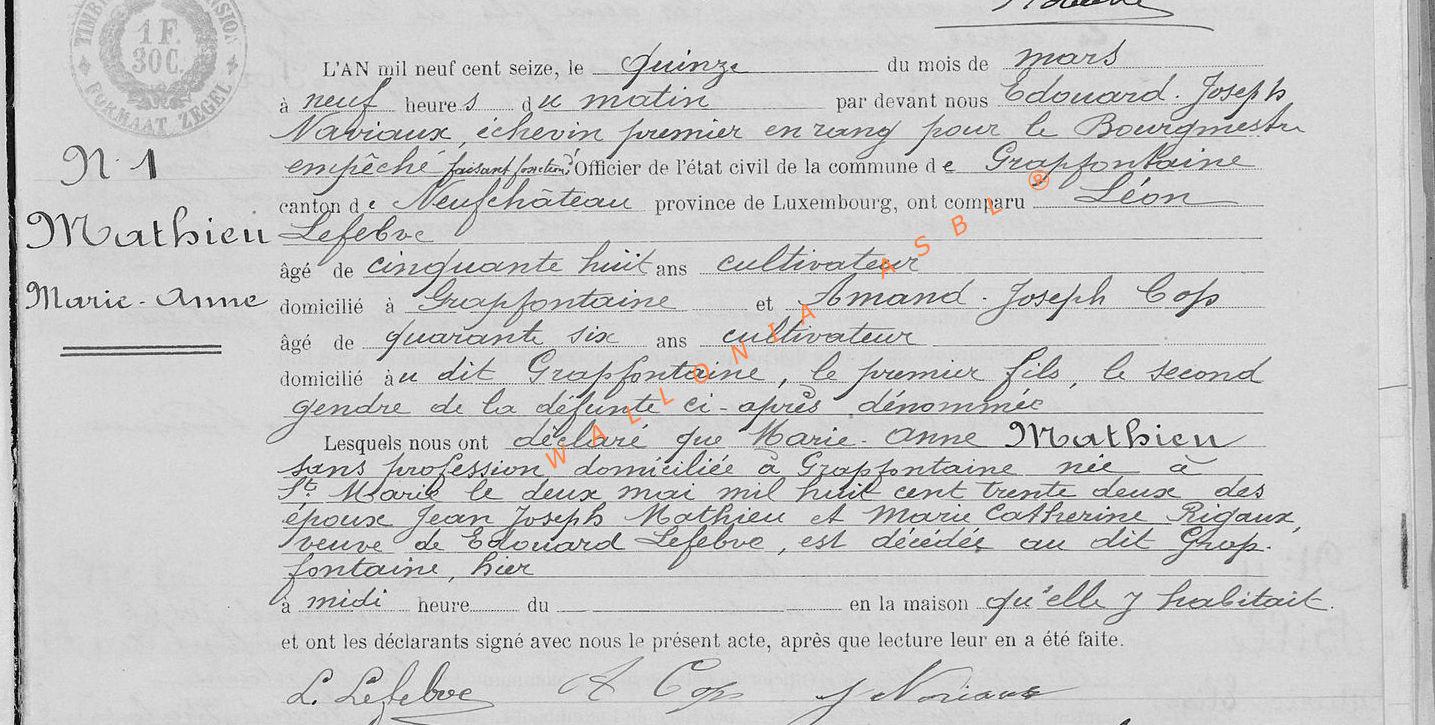 1 F.
30 C.
FORMAAT ZEGEL
L'AN mil neuf cent seize, le quinze du mois de mars
à neuf heures du matin par devant nous Edouard. Joseph
Naviaux, échevin premier en rang pour le Bourgmestre
empêché faisant fonctions, Officier de l'état civil de la commune de Grapfontaine
canton de Neufchâteau province de Luxembourg, ont comparu Léon
Lefebve
âgé de cinquante huit ans cultivateur
domicilié à Grapfontaine et Amand. Joseph Cop
âgé de quarante six ans cultivateur
domicilié au dit Grapfontaine, le premier fils, le second
gendre de la défunte ci-après dénommée
Lesquels nous ont déclaré que Marie-Anne Mathieu
sans profession domiciliée à Grapfontaine née à
St. Marie le deux mai mil huit cent trente deux des
époux Jean Joseph Mathieu et Marie Catherine Rigaux,
veuve de Edouard Lefebve, est décédée au dit Grap.
fontaine, hier
à midi heure du en la maison qu'elle y habitait.
et ont les déclarants signé avec nous le présent acte, après que lecture leur en a été faite.
L. Lefebve A Cop
N. 1
Mathieu
Marie-Anne
WALLONIA ASBL ®